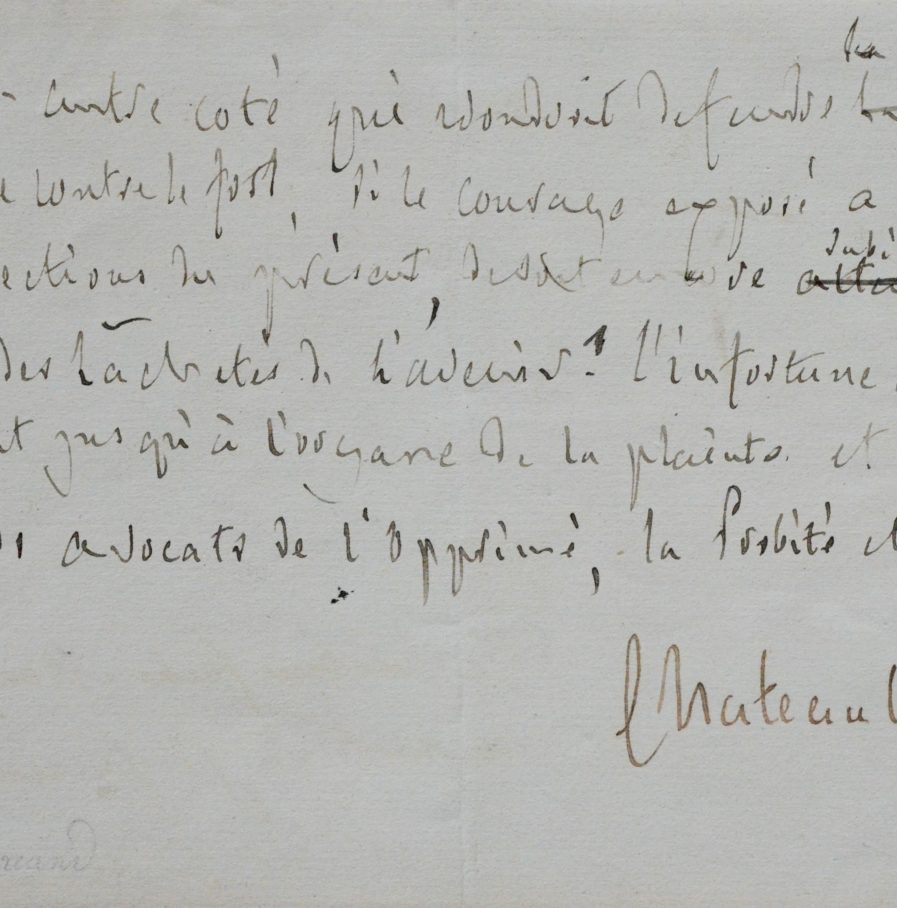 la
autre coté qui voudroit defendre
contre le fort, si le courage exposé a
ections du présent, devoit encore
subi
des lâchetés de l'avenir? l'infortune
t jusqu'à l'organe de la plainte et
avocats de l'opprimé, la Probité et
Chateaub